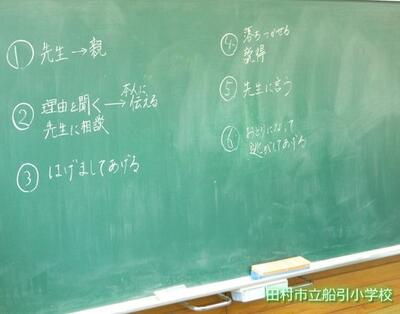 ① 先生→親
② 理由を聞く→本人に伝える
先生に相談
③ はげましてあげる
④ 落ちつかせる
説得
⑤ 先生に言う
⑥ おとりになって
逃がしてあげる
田村市立船引小学校